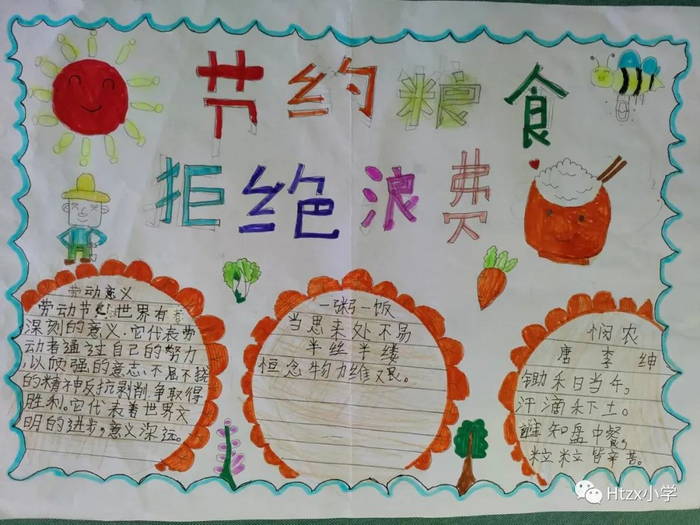 节约粮食
拒绝浪费
劳动意义
劳动节 世界有着
深刻的意义,它代表劳
动者通过自己的努力
,以顽强的意志、不屈不挠
的精神反抗剥削,争取得
胜利。它代表着世界文
明的进步,意义深远。
一粥一饭
当思来处不易
半丝半缕
恒念物力维艰。
悯农
唐 李绅
锄禾日当午,
汗滴禾下土。
谁知盘中餐,
粒粒皆辛苦。
Htzx小学